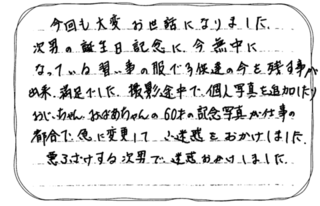 今回も大変お世話になりました。
次男の誕生日記念に、今夢中に
なっている習い事の服で子供達の今を残す事が
出来、満足でした。撮影途中で、個人写真を追加したり
おじいちゃん、おばあちゃんの60才の記念写真が仕事の
都合で急に変更して ご迷惑をおかけしました。
悪ふざけする次男で、迷惑おかけしました。